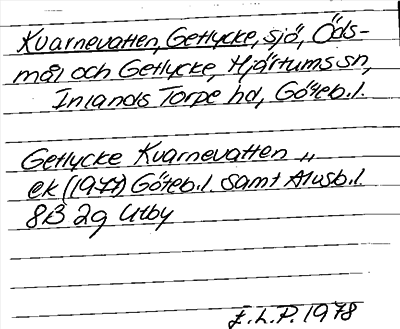 Kvarnevatten, Getlycke, sjö, Öds-
mål och Getlycke, Hjärtums sn,
Inlands Torpe hd, Göteb.l.
Getlycke Kvarnevatten "
ek (1977) Göteb.l. samt Älvsb.l.
8B 2g Utby
E.L.P. 1978